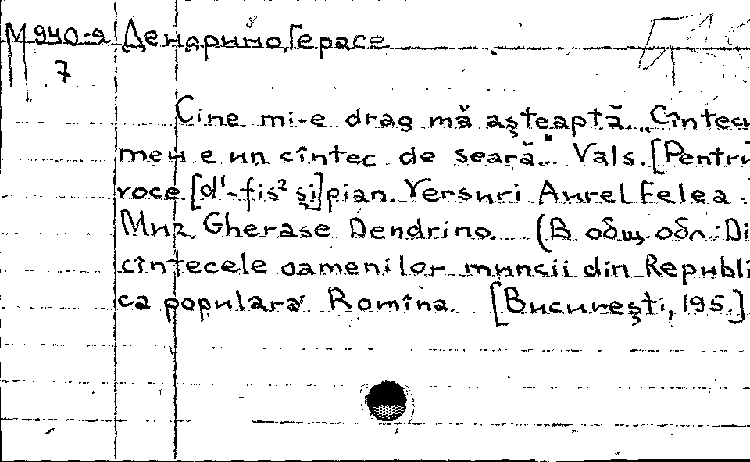 М 940-9 Дендрино, Герасе
7
Cine mi-e drag mă aşteaptă... Cîntecu
meu e un cîntec de seară... Vals. [Pentru
voce [d¹-fis² şi] pian. Versuri Aurel Felea.
Muz. Gherase Dendrino. (В общ. обл.: Di
cîntecele oamenilor muncii din Republi
ca populara Romîna. [Bucureşti, 195.]